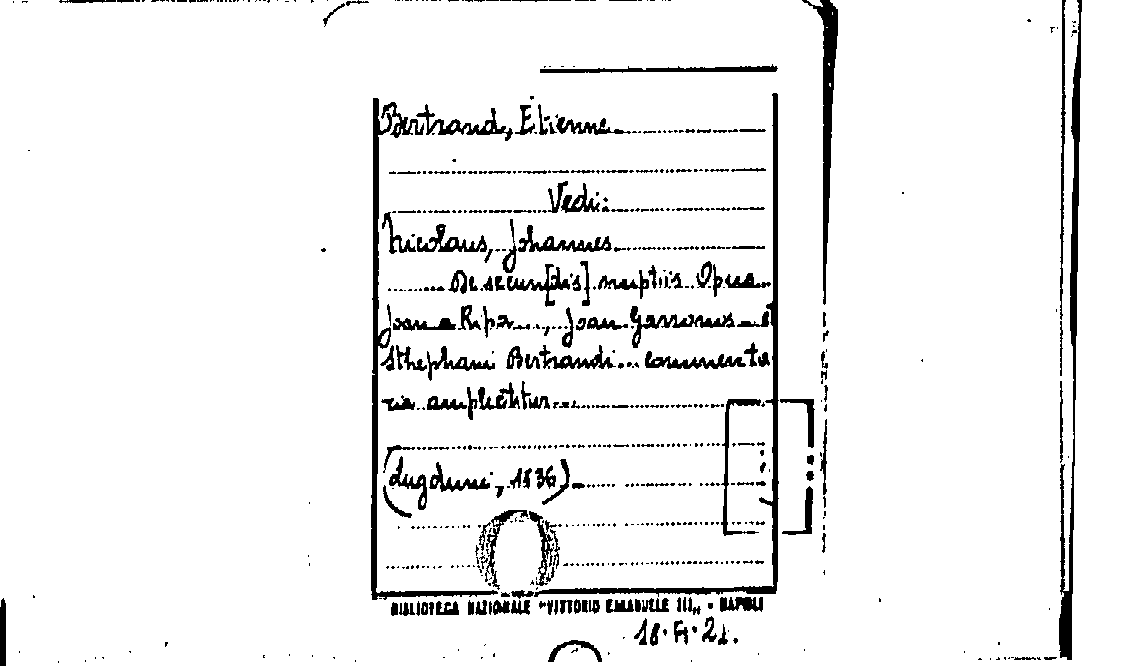 Bertrand, Étienne
Vedi:
Nicolaus, Johannes
... De secun[dis] nuptiis Opus
Joan a Ripa..., Joan Garronus et
Sthephani Bertrandi... commenta
ria amplectitur...
(Lugduni, 1536)
BIBLIOTECA NAZIONALE "VITTORIO EMANUELE III" - NAPOLI
18. A. 21.